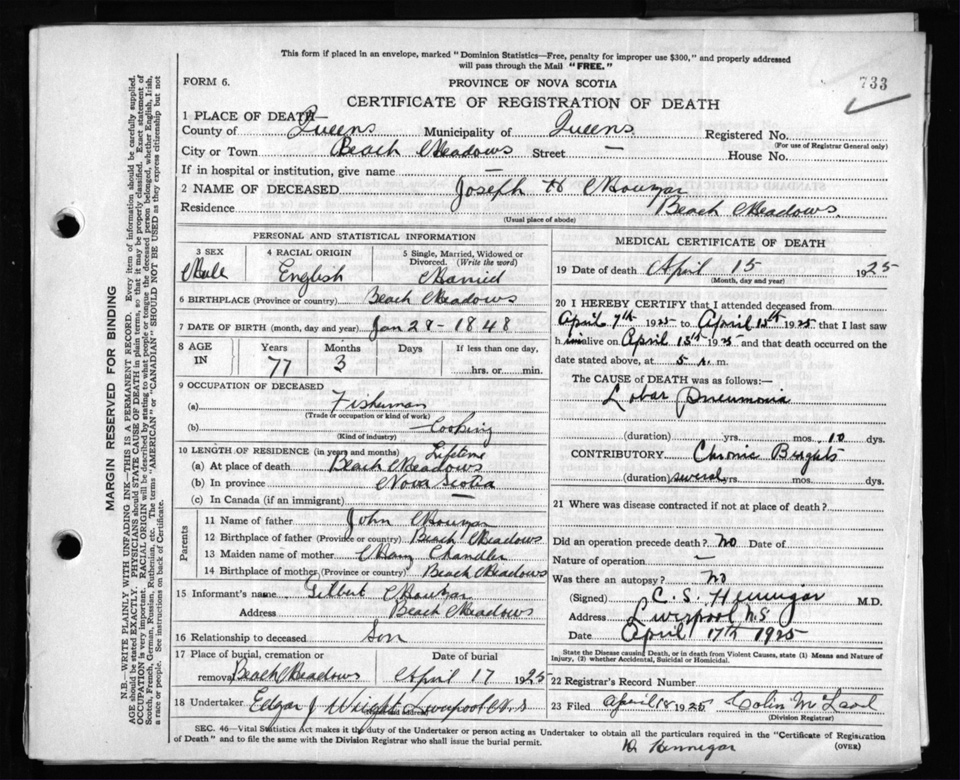 This form if placed in an envelope, marked "Dominion Statistics—Free, penalty for improper use $300," and properly addressed
will pass through the Mail "FREE."
FORM 6.
PROVINCE OF NOVA SCOTIA
733
CERTIFICATE OF REGISTRATION OF DEATH
1 PLACE OF DEATH—
County of Queens Municipality of Queens Registered No.
(For use of Registrar General only)
City or Town Beach Meadows Street — House No.
If in hospital or institution, give name —
2 NAME OF DECEASED Joseph H
Residence Beach Meadows.
(Usual place of abode)
PERSONAL AND STATISTICAL INFORMATION
3 SEX 4 RACIAL ORIGIN 5 Single, Married, Widowed or
Divorced. (Write the word)
Male English Married
6 BIRTHPLACE (Province or country) Beach Meadows
7 DATE OF BIRTH (month, day and year) Jan 28 - 1848
8 AGE IN Years Months Days If less than one day,
77 3 hrs. or min.
9 OCCUPATION OF DECEASED
(a) Fisherman
(Trade or occupation or kind of work)
(b)
(Kind of industry)
10 LENGTH OF RESIDENCE (in years and months) Lifetime
(a) At place of death Beach Meadows
(b) In province Nova Scotia
(c) In Canada (if an immigrant) —
Parents
11 Name of father John
12 Birthplace of father (Province or country) Beach Meadows
13 Maiden name of mother Mary Chandler
14 Birthplace of mother (Province or country) Beach Meadows
15 Informant's name Gilbert
Address Beach Meadows
16 Relationship to deceased Son
17 Place of burial, cremation or Date of burial
removal Beach Meadows April 17 1925
18 Undertaker Edgar J Wright Liverpool N.S
MEDICAL CERTIFICATE OF DEATH
19 Date of death April 15 1925
(Month, day and year)
20 I HEREBY CERTIFY that I attended deceased from
April 7th 1925 to April 15th 1925 that I last saw
him alive on April 15th 1925 and that death occurred on the
date stated above, at 5 m.
The CAUSE OF DEATH was as follows:—
Lobar Pneumonia
(duration) yrs. mos. 10 dys.
CONTRIBUTORY Chronic Brights
(duration) several yrs. mos. dys.
21 Where was disease contracted if not at place of death?
Did an operation precede death? No Date of
Nature of operation —
Was there an autopsy? no
(Signed) C. S. Hennigar M.D.
Address Liverpool N.S
Date April 17th 1925
State the Disease causing Death, or in death from Violent Causes, state (1) Means and Nature of
Injury, (2) whether Accidental, Suicidal or Homicidal.
22 Registrar's Record Number
23 Filed April 18 1925 Colin McLeod
(Division Registrar)
SEC. 46—Vital Statistics Act makes it the duty of the Undertaker or person acting as Undertaker to obtain all the particulars required in the "Certificate of Registration
of Death" and to file the same with the Division Registrar who shall issue the burial permit.
(OVER)
Hennigar
MARGIN RESERVED FOR BINDING
N.B.—WRITE PLAINLY WITH UNFADING INK—THIS IS A PERMANENT RECORD. Every item of information should be carefully supplied.
AGE should be stated EXACTLY. PHYSICIANS should STATE CAUSE OF DEATH in plain terms, so that it may be properly classified. Exact statement of
OCCUPATION is very important. RACIAL ORIGIN will be described by stating to what people or tongue the deceased person belonged, whether English, Irish,
Scotch, French, German, Russian, Ruthenian, etc. The terms "AMERICAN" or "CANADIAN" SHOULD NOT BE USED as they express citizenship but not
a race or people. See instructions on back of Certificate.